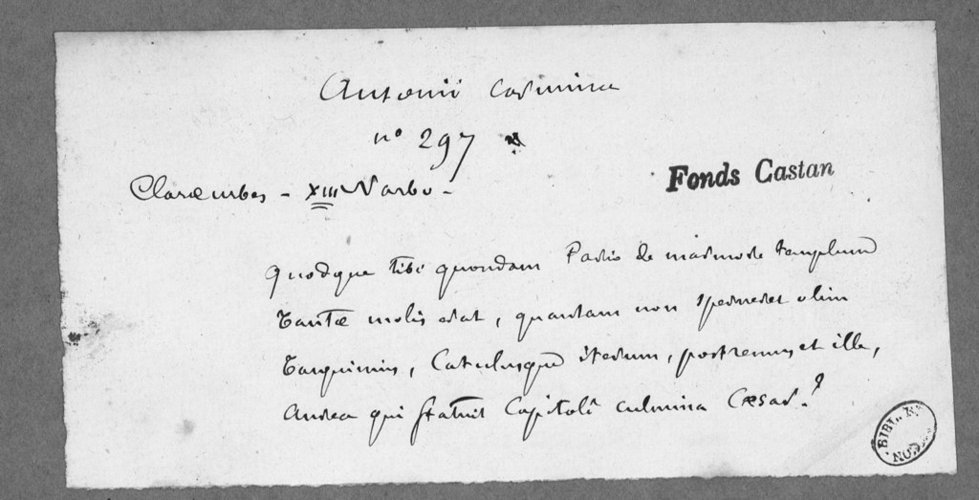 Ausonii carmina
n° 297
Claræ urbes - XIII Narbo -
Fonds Castan
Quodque tibi quondam Pario de marmore templum
Tantæ molis erat, quantam non sperneret olim
Tarquinius, Catulusque iterum, postremus et ille,
Aurea qui statuit Capitolî culmina Cæsar?
BIBL